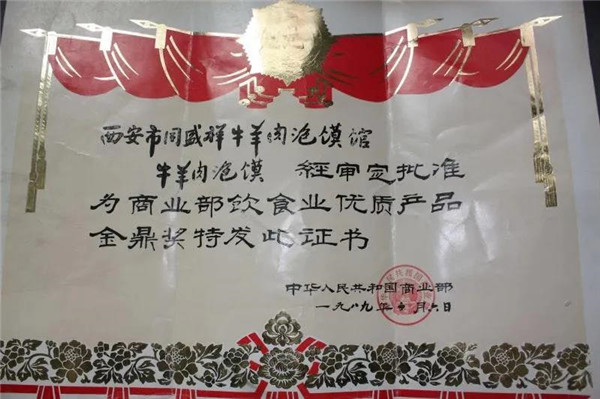 西安市同盛祥牛羊肉泡馍馆
牛羊肉泡馍 經审定批准
为商业部饮食业优质产品
金鼎奖特发此证书
中华人民共和国商业部
一九八九年 月六日